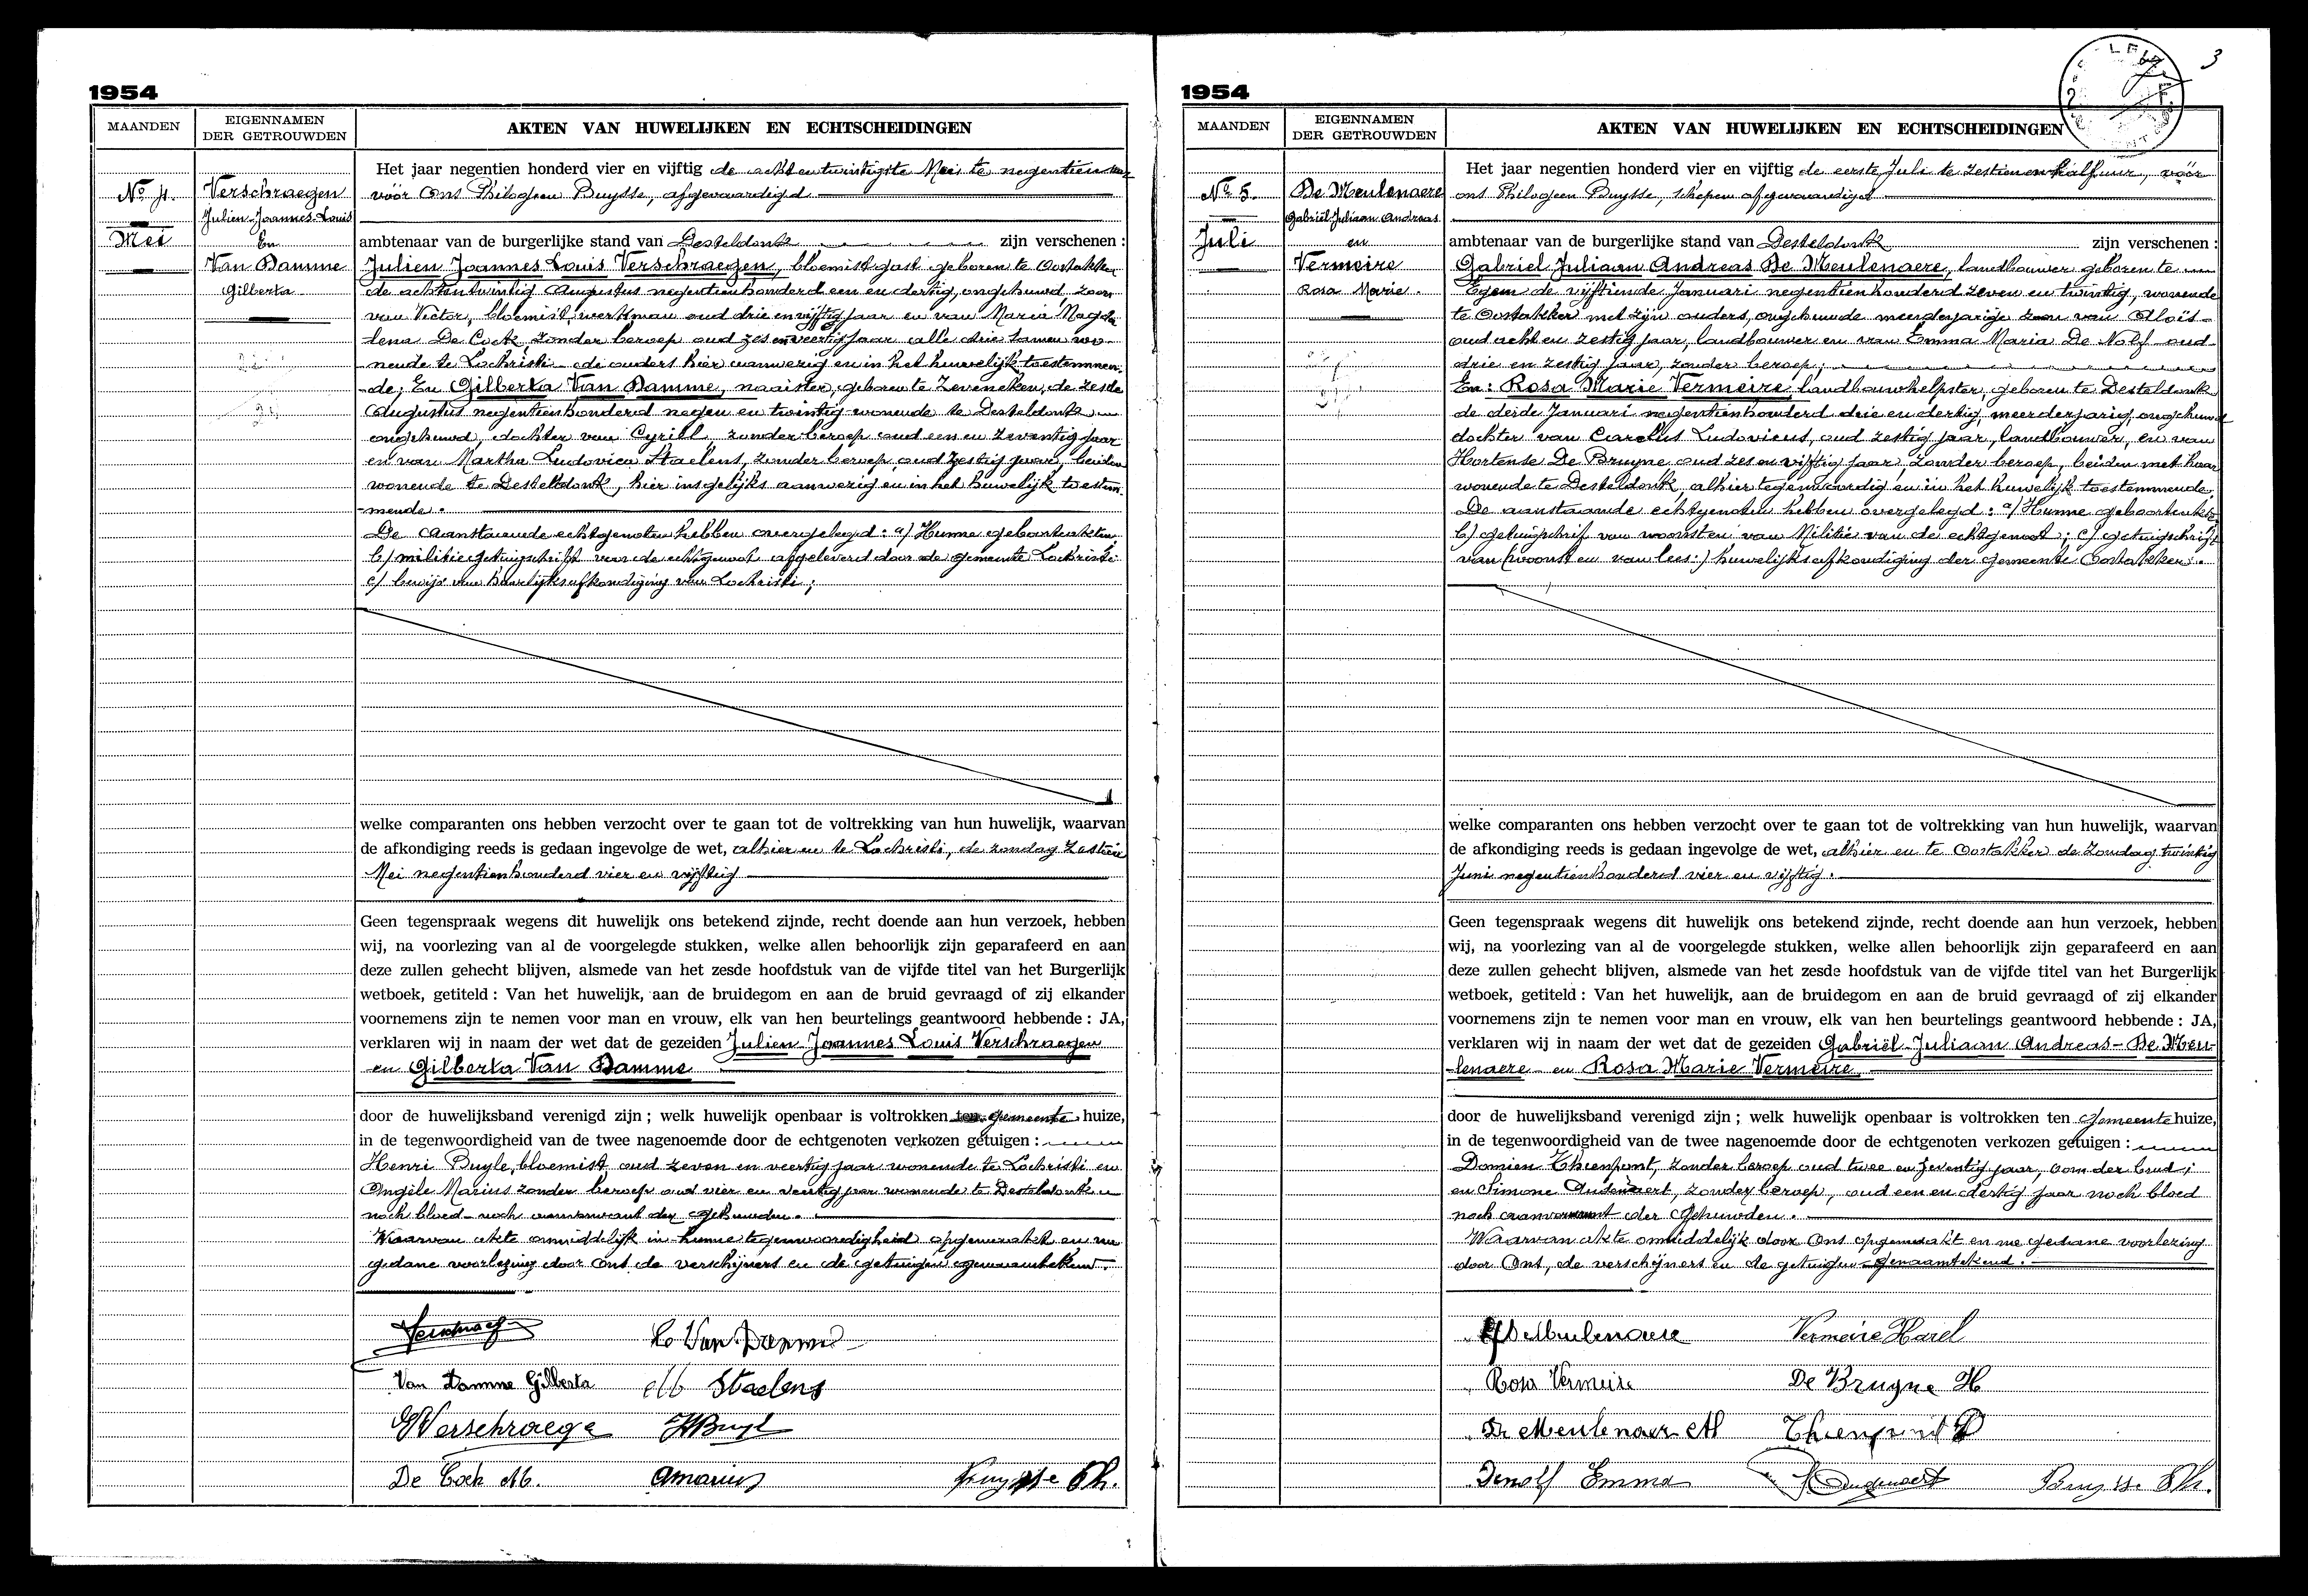 1954
MAANDEN
EIGENNAMEN
DER GETROUWDEN
AKTEN VAN HUWELIJKEN EN ECHTSCHEIDINGEN
No 4.
Mei
Verschraegen
Julien Joannes Louis
En
Van Damme
Gilberta
Het jaar negentien honderd vier en vijftig de achtentwintigste Mei te negentien uur
vóór Ons Philogeen Buysse, afgevaardigd
ambtenaar van de burgerlijke stand van Desteldonk zijn verschenen :
Julien Joannes Louis Verschraegen, bloemist gast geboren te Oostakker
de achtentwintig Augustus negentienhonderd een en dertig, ongehuwd zoon
van Victor, bloemist, werkman oud drie en vijftig jaar en van Maria Magda
lena De Cock, zonder beroep oud zes en veertig jaar alle drie samen wo-
nende te Lochristi de ouders hier aanwezig en in het huwelijk toestemmen-
de; En Gilberta Van Damme, naaister, geboren te Zeveneken, de zesde
Augustus negentienhonderd negen en twintig wonende te Desteldonk
ongehuwd, dochter van Cyriel, zonder beroep oud een en zeventig jaar
en van Martha Ludovica Staelens, zonder beroep oud zestig jaar, beiden
wonende te Desteldonk, hier insgelijks aanwezig en in het huwelijk toestem-
mende.
De aanstaande echtgenoten hebben overgelegd : a/ Hunne geboorteakten
b/ militiegetuigschrift voor de echtgenoot afgeleverd door de gemeente Lochristi
c/ bewijs van huwelijksafkondiging van Lochristi ;
welke comparanten ons hebben verzocht over te gaan tot de voltrekking van hun huwelijk, waarvan
de afkondiging reeds is gedaan ingevolge de wet, alhier en te Lochristi, de zondag zestien
Mei negentienhonderd vier en vijftig
Geen tegenspraak wegens dit huwelijk ons betekend zijnde, recht doende aan hun verzoek, hebben
wij, na voorlezing van al de voorgelegde stukken, welke allen behoorlijk zijn geparafeerd en aan
deze zullen gehecht blijven, alsmede van het zesde hoofdstuk van de vijfde titel van het Burgerlijk
wetboek, getiteld : Van het huwelijk, aan de bruidegom en aan de bruid gevraagd of zij elkander
voornemens zijn te nemen voor man en vrouw, elk van hen beurtelings geantwoord hebbende : JA,
verklaren wij in naam der wet dat de gezeiden Julien Joannes Louis Verschraegen
en Gilberta Van Damme
door de huwelijksband verenigd zijn ; welk huwelijk openbaar is voltrokken ten gemeente huize,
in de tegenwoordigheid van de twee nagenoemde door de echtgenoten verkozen getuigen :
Henri Buyle, bloemist, oud zeven en veertig jaar wonende te Lochristi en
Angèle Marius zonder beroep oud vier en veertig jaar wonende te Desteldonk
noch bloed noch aanverwant der gehuwden.
Waarvan akte onmiddelijk in hunne tegenwoordigheid opgemaakt en na
gedane voorlezing door Ons de verschijners en de getuigen genaamtekend.
C Van Damme
Van Damme Gilberta
M Staelens
V Verschraege
H Buyl
De Cock M.
A Marius
Buysse Ph.
3
1954
MAANDEN
EIGENNAMEN
DER GETROUWDEN
AKTEN VAN HUWELIJKEN EN ECHTSCHEIDINGEN
No 5.
Juli
De Meulenaere
Gabriël Juliaan Andreas
en
Vermeire
Rosa Marie.
Het jaar negentien honderd vier en vijftig de eerste Juli te zestien en half uur, vóór
ons Philogeen Buysse, schepen afgevaardigd
ambtenaar van de burgerlijke stand van Desteldonk zijn verschenen :
Gabriel Juliaan Andreas De Meulenaere, landbouwer geboren te
Egem de vijftiende Januari negentienhonderd zeven en twintig, wonende
te Oostakker met zijn ouders, ongehuwde meerderjarige zoon van Aloïs
oud acht en zestig jaar, landbouwer en van Emma Maria De Nolf oud
drie en zestig jaar, zonder beroep ;
En : Rosa Marie Vermeire landbouwhelpster, geboren te Desteldonk
de derde Januari negentienhonderd drie en dertig, meerderjarig, ongehuwd
dochter van Carolus Ludovicus, oud zestig jaar, landbouwer, en van
Hortense De Bruyne oud zes en vijftig jaar, zonder beroep, beiden met haar
wonende te Desteldonk, alhier tegenwoordig en in het huwelijk toestemmende.
De aanstaande echtgenoten hebben overgelegd : a/ Hunne geboorteakten
b/ getuigschrift van woonst en van Militie van de echtgenoot ; c/ getuigschrift
van (woonst en van lees :) huwelijksafkondiging der gemeente Oostakker.
welke comparanten ons hebben verzocht over te gaan tot de voltrekking van hun huwelijk, waarvan
de afkondiging reeds is gedaan ingevolge de wet, alhier en te Oostakker de Zondag twintig
Juni negentienhonderd vier en vijftig.
Geen tegenspraak wegens dit huwelijk ons betekend zijnde, recht doende aan hun verzoek, hebben
wij, na voorlezing van al de voorgelegde stukken, welke allen behoorlijk zijn geparafeerd en aan
deze zullen gehecht blijven, alsmede van het zesde hoofdstuk van de vijfde titel van het Burgerlijk
wetboek, getiteld : Van het huwelijk, aan de bruidegom en aan de bruid gevraagd of zij elkander
voornemens zijn te nemen voor man en vrouw, elk van hen beurtelings geantwoord hebbende : JA,
verklaren wij in naam der wet dat de gezeiden Gabriël Juliaan Andreas De Meu-
lenaere en Rosa Marie Vermeire
door de huwelijksband verenigd zijn ; welk huwelijk openbaar is voltrokken ten Gemeente huize,
in de tegenwoordigheid van de twee nagenoemde door de echtgenoten verkozen getuigen :
Damien Thienpont, zonder beroep oud twee en zeventig jaar, oom der bruid ;
en Simone Audenaert, zonder beroep, oud een en dertig jaar noch bloed
noch aanverwant der gehuwden.
Waarvan akte onmiddelijk door Ons opgemaakt en na gedane voorlezing
door Ons, de verschijners en de getuigen genaamtekend.
G De Meulenaere
Vermeire Karel
Rosa Vermeire
De Bruyne H
De Meulenaer Al
Thienpont D
Denolf Emma
S Audenaert
Buysse Ph.